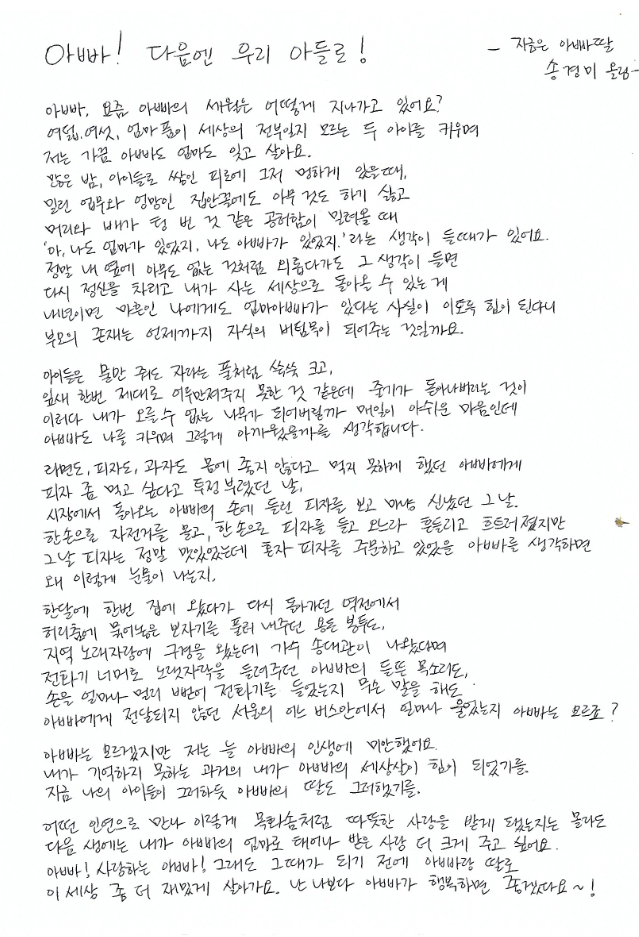 아빠! 다음엔 우리 아들로!
- 지금은 아빠딸
송경미 올림-
아빠, 요즘 아빠의 세월은 어떻게 지나가고 있어요?
여덟, 여섯, 엄마 품이 세상의 전부일지 모르는 두 아이를 키우며
저는 가끔 아빠도 엄마도 잊고 살아요.
많은 밤, 아이들로 쌓인 피로에 그저 멍하게 있을때,
밀린 업무와 엉망인 집안꼴에도 아무 것도 하기 싫고
머리와 배가 텅 빈 것 같은 공허함이 밀려올 때
'아, 나도 엄마가 있었지, 나도 아빠가 있었지.'라는 생각이 들때가 있어요.
정말 내 옆에 아무도 없는 것처럼 외롭다가도 그 생각이 들면
다시 정신을 차리고 내가 사는 세상으로 돌아올 수 있는게
내년이면 마흔인 나에게도 엄마아빠가 있다는 사실이 이토록 힘이 된다니
부모의 존재는 언제까지 자식의 버팀목이 되어주는 것일까요.
아이들은 물만 줘도 자라는 풀처럼 쑥쑥 크고,
잎새 한번 제대로 어루만져주지 못한 것 같은데 줄기가 돋아나버리는 것이
이러다 내가 오를수 없는 나무가 되어버릴까 매일이 아쉬운 마음인데
아빠도 나를 키우며 그렇게 아까웠을까를 생각합니다.
라면도, 피자도, 과자도 몸에 좋지 않다고 먹지 못하게 했던 아빠에게
피자 좀 먹고 싶다고 투정 부렸던 날,
시장에서 돌아오는 아빠의 손에 들린 피자를 보고 마냥 신났던 그 날.
한손으로 자전거를 몰고, 한 손으로 피자를 들고 오느라 흔들리고 흐트러졌지만
그날 피자는 정말 맛있었는데 혼자 피자를 주문하고 있었을 아빠를 생각하면
왜 이렇게 눈물이 나는지,
한달에 한번 집에 왔다가 다시 돌아가던 역전에서
허리춤에 묶어놓은 보자기를 풀러 내주던 용돈 봉투도,
지역 노래자랑에 구경을 왔는데 가수 송대관이 나왔다며
전화기 너머로 노랫자락을 들려주던 아빠의 들뜬 목소리도,
손을 얼마나 멀리 뻗어 전화기를 들었는지 무슨 말을 해도
아빠에게 전달되지 않던 서울의 어느 버스안에서 얼마나 울었는지 아빠는 모르죠?
아빠는 모르겠지만 저는 늘 아빠의 인생에 미안했어요.
내가 기억하지 못하는 과거의 내가 아빠의 세상살이 힘이 되었기를.
지금 나의 아이들이 그러하듯 아빠의 딸도 그러했기를.
어떤 인연으로 만나 이렇게 목화솜처럼 따뜻한 사랑을 받게 됐는지는 몰라도
다음 생에는 내가 아빠의 엄마로 태어나 받은 사랑 더 크게 주고 싶어요.
아빠! 사랑하는 아빠! 그래도 그때가 되기 전에 아빠랑 딸로
이 세상 좀 더 재밌게 살아가요. 난 나보다 아빠가 행복하면 좋겠다요~!